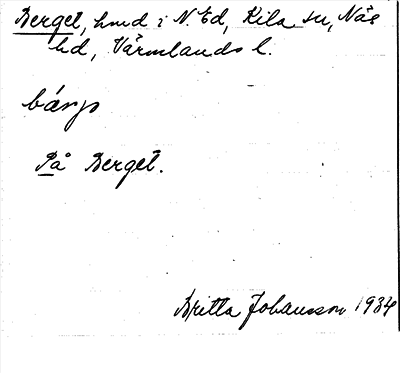 Berget, hmd i N. Ed, Kila sn, Näs
hd, Värmlands l.
bárjs
På Berget.
Britta Johansson 1934